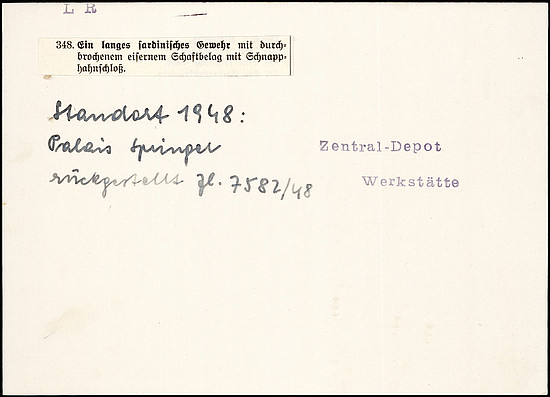 L R
348. Ein langes sardinisches Gewehr mit durch-
brochenem eisernem Schaftbelag mit Schnapp-
hahnschloß.
Standort 1948:
Palais Springer
Zentral-Depot
rückgestellt Zl. 7582/48
Werkstätte